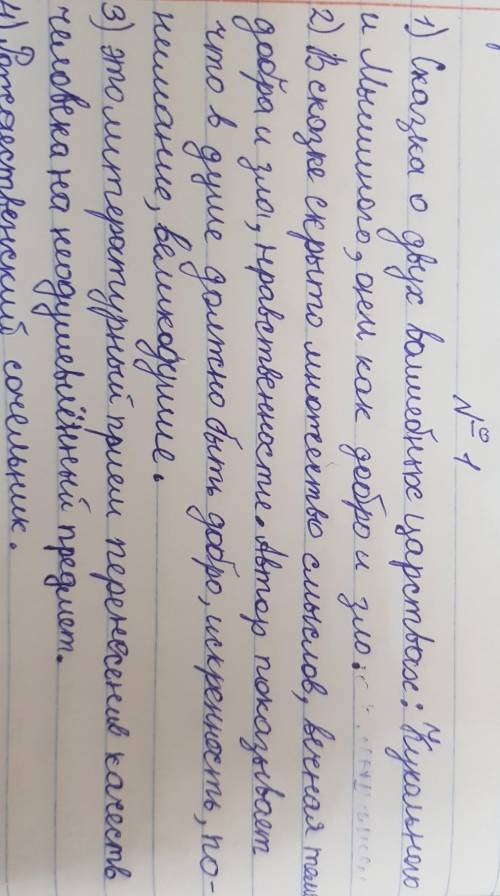 № 1
1) Сказка о двух волшебных царствах: Кукольного
и Мышиного, они как добро и зло.
2) В сказке скрыто множество смыслов, вечная тема
добра и зла, нравственности. Автор показывает
что в душе должно быть добро, искренность, по-
нимание, великодушие.
3) это литературный прием перенесения качеств
человека на неодушевлённый предмет.
4) Рождественский сочельник.